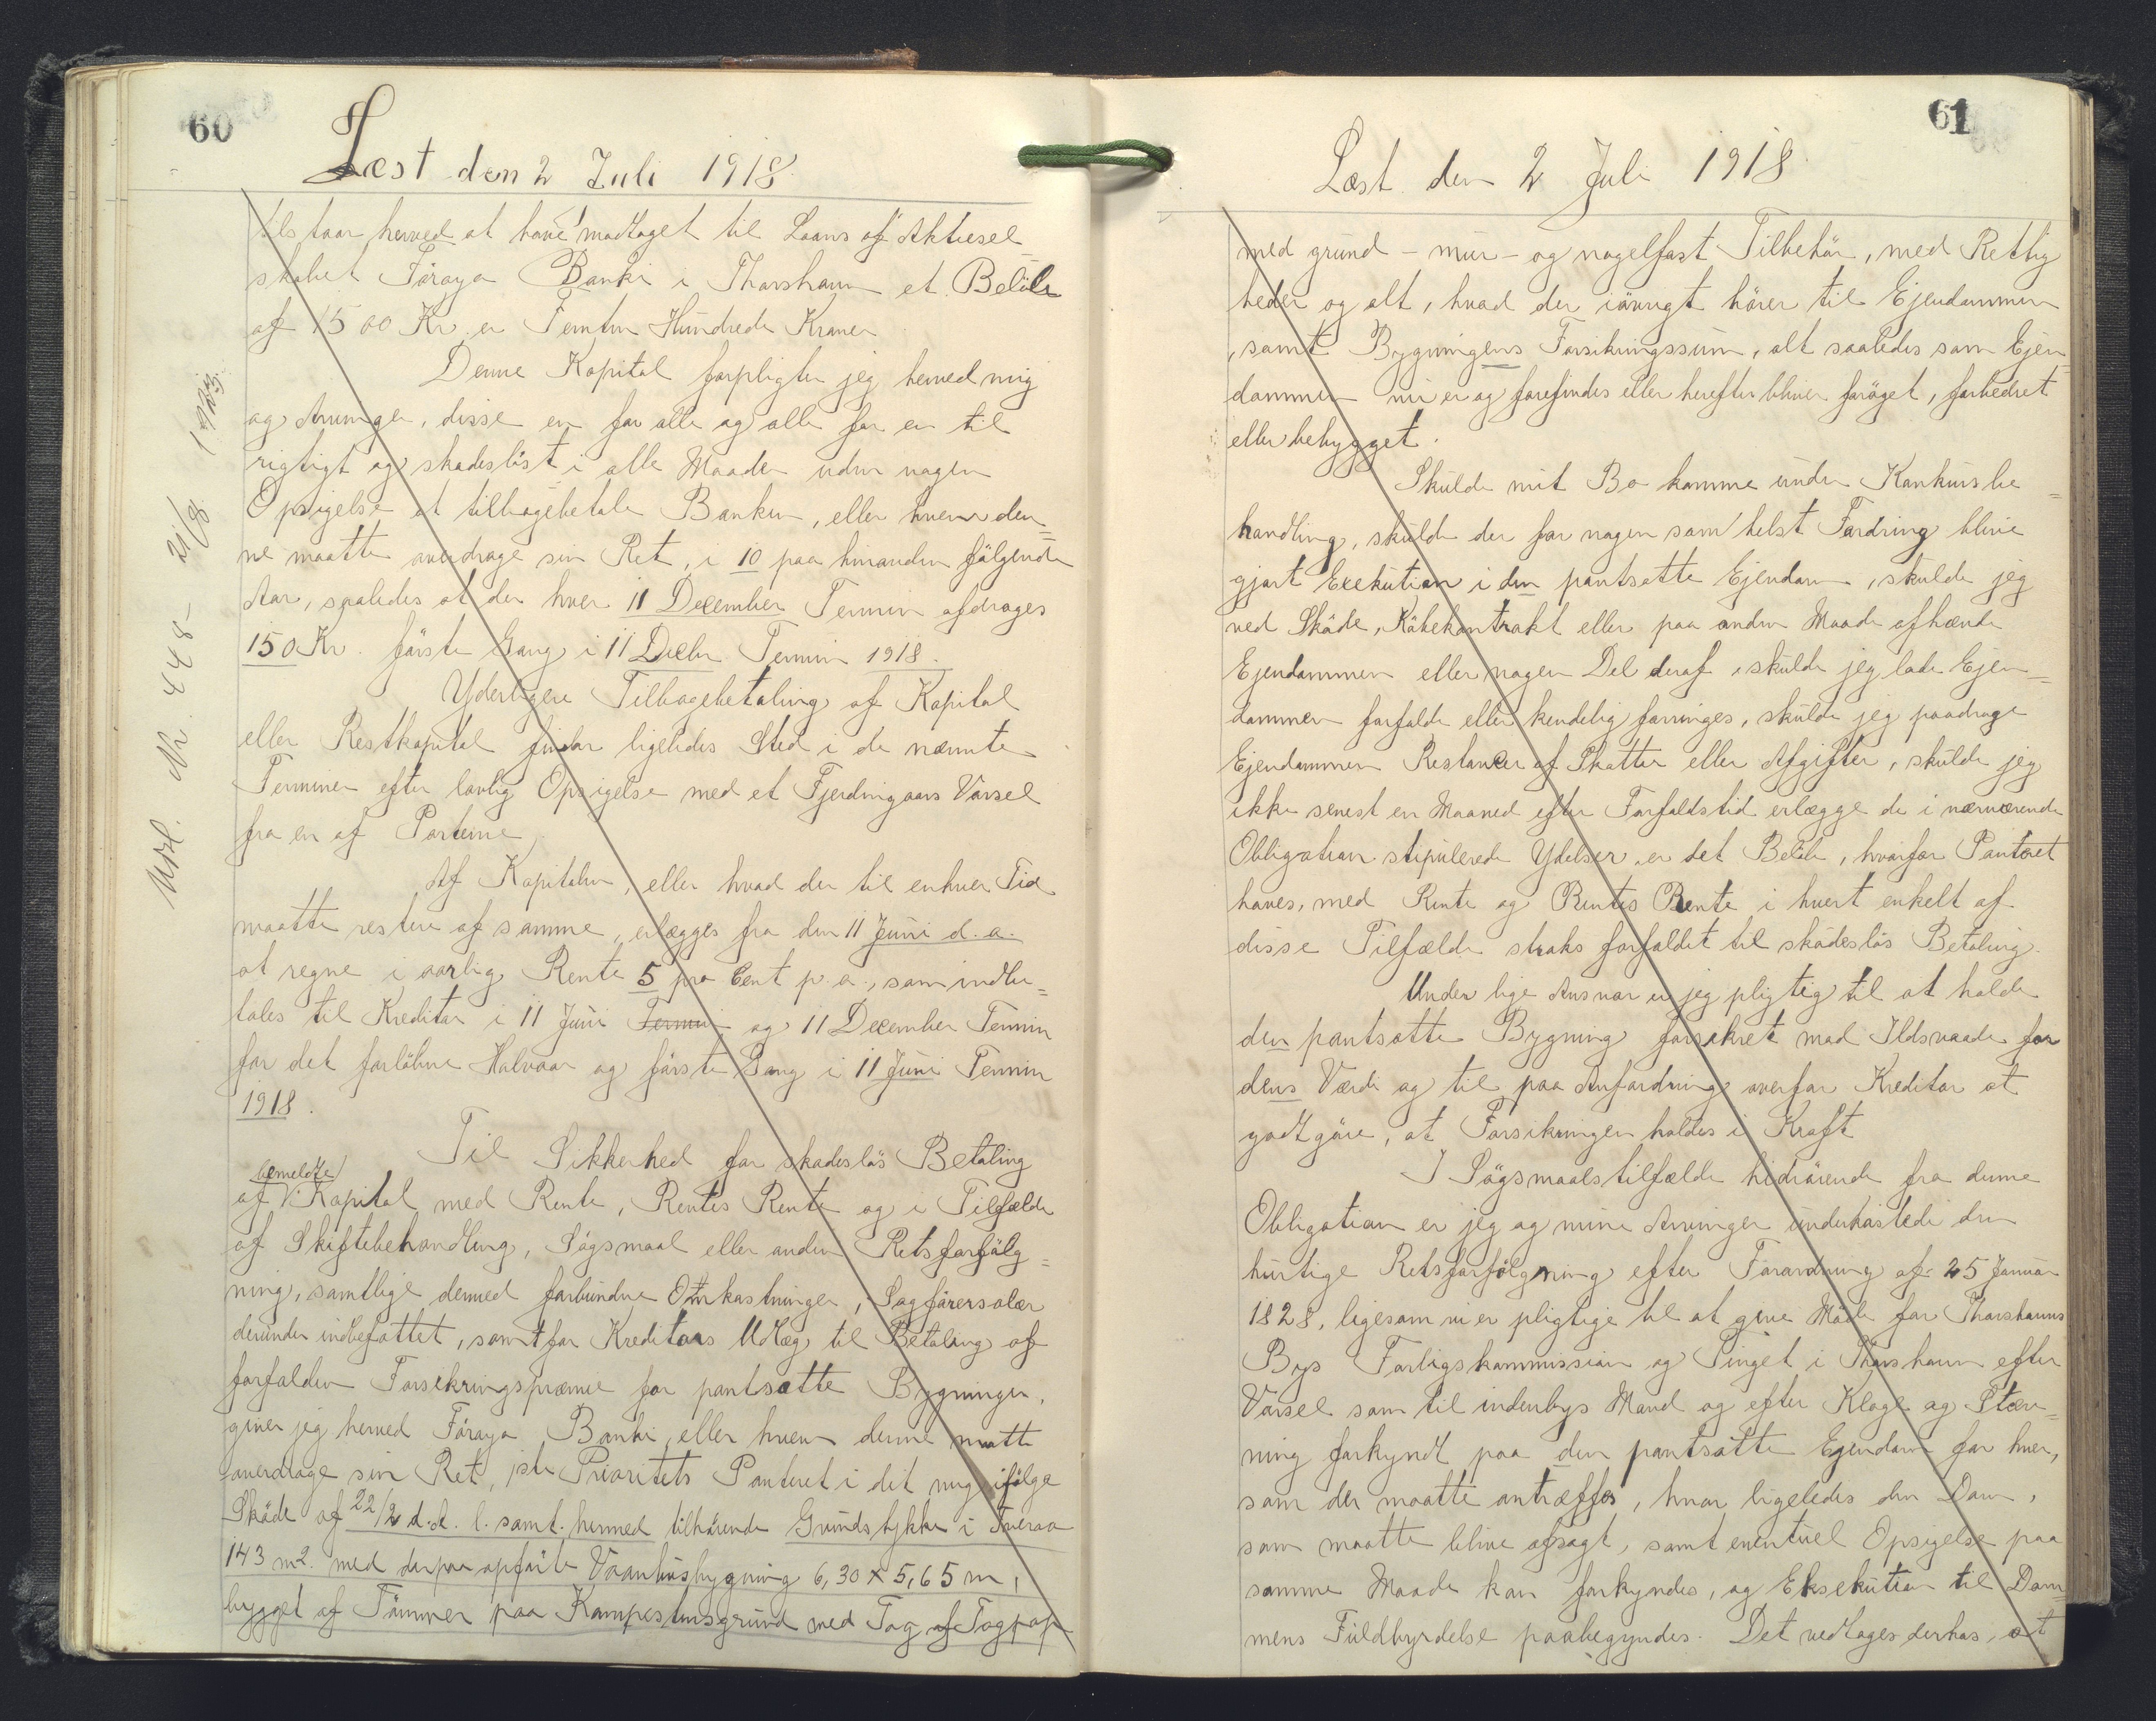 60
Læst den 2 Juli 1918
tilstaar herved at have modtaget til Laans af Aktiesel-
skabet Föroya Banki i Thorshavn et Beløb
af 1500 Kr. er Femten Hundrede Kroner
Denne Kapital forpligter jeg herved mig
og Arvinger, disse en for alle og alle for en til
rigtigt og skadesløst i alle Maader uden nogen
Opsigelse at tilbagebetale Banken, eller hvem den=
ne maatte overdrage sin Ret, i 10 paa hinanden følgende
Aar, saaledes at der hver 11 December Termin afdrages
150 Kr. første Gang i 11 Decbr Termin 1918.
Yderligere Tilbagebetaling af Kapital
eller Restkapital finder ligeledes Sted i de nævnte
Terminer efter lovlig Opsigelse med et Fjerdingaars Varsel
fra en af Parterne.
Af Kapitalen, eller hvad der til enhver Tid
maatte restere af samme, erlægges fra den 11 Juni d.a.
at regne i aarlig Rente 5 pro Cent p.a., som indbe=
tales til Kreditor i 11 Juni Termin og 11 December Termin
for det forløbne Halvaar og første Gang i 11 Juni Termin
1918.
Til Sikkerhed for skadesløs Betaling
bemeldte
af V. Kapital med Rente, Rentes Rente og i Tilfælde
af Skiftebehandling, Søgsmaal eller anden Retsforfølg=
ning, samtlige dermed forbundne Omkostninger, Sagførersalær
derunder indbefattet, samt for Kreditors Udlæg til Betaling af
forfalden Forsikringspræmie for pantsatte Bygninger,
giver jeg herved Föroya Banki, eller hvem denne maatte
overdrage sin Ret, 1ste Prioritets Panteret i det mig ifølge
Skøde af 22/2 d.d. l. samt. hermed tilhørende Grundstykke i Tveraa
143 m2. med derpaa opført Vaanhusbygning 6,30 x 5,65 m,
bygget af Tømmer paa Kampestensgrund med Tag af Tagpap
Udsl. Nr. 448 - 21/8 1923.
61
Læst den 2 Juli 1918
med grund - mur - og nagelfast Tilbehør, med Rettig
heder og alt, hvad der iøvrigt hører til Ejendommen
, samt Bygningens Forsikringssum, alt saaledes som Ejen
dommen nu er og forefindes eller herefter bliver forøget, forbedret
eller bebygget.
Skulde mit Bo komme under Konkursbe=
handling, skulde der for nogen som helst Fordring blive
gjort Execution i den pantsatte Ejendom, skulde jeg
ved Skøde, Købekontrakt eller paa anden Maade afhænde
Ejendommen eller nogen Del deraf, skulde jeg lade Ejen=
dommen forfalde eller kendelig forringes, skulde jeg paadrage
Ejendommen Restancer af Skatter eller Afgifter, skulde jeg
ikke senest en Maaned efter Forfaldstid erlægge de i nærværende
Obligation stipulerede Ydelser, er det Beløb, hvorfor Panteret
haves, med Rente og Rentes Rente i hvert enkelt af
disse Tilfælde straks forfaldet til skadesløs Betaling.
Under lige Ansvar er jeg pligtig til at holde
den pantsatte Bygning forsikret mod Ildsvaade for
dens Værdi og til paa Anfordring overfor Kreditor at
godtgøre, at Forsikringen holdes i Kraft
I Søgsmaalstilfælde hidrørende fra denne
Obligation er jeg og mine Arvinger underkastede den
hurtige Retsforfølgning efter Forordning af 25 Januar
1828, ligesom vi er pligtige til at give Møde for Thorshavns
Bys Forligskommission og Tinget i Thorshavn efter
Varsel som til indenbys Mand og efter Klage og Stæv=
ning forkyndt paa den pantsatte Ejendom for hver,
som der maatte antræffes, hvor ligeledes den Dom,
som maatte blive afsagt, samt eventuel Opsigelse paa
samme Maade kan forkyndes, og Eksekution til Dom=
mens Fuldbyrdelse paabegyndes. Det vedtages derhos, at